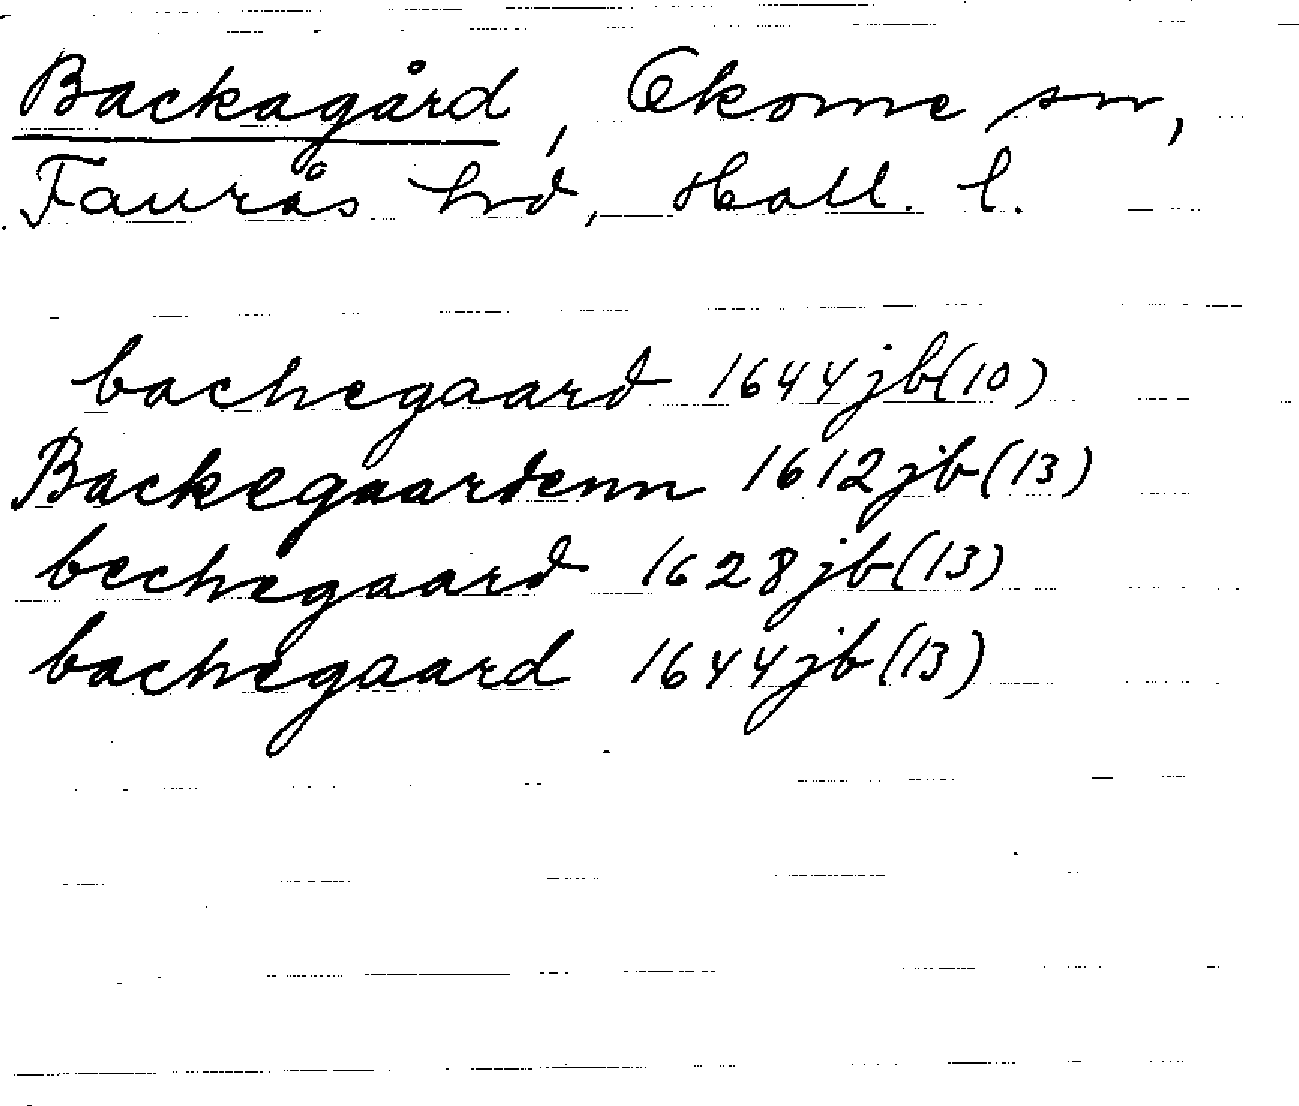 Backagård, Okome sn,
Faurås hd, Hall. l.
bachegaard 1644 jb (10)
Backegaardenn 1612 jb (13)
bechegaard 1628 jb (13)
bachegaard 1644 jb (13)